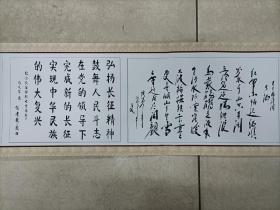 红军不怕远征难
万水千山只等闲
五岭逶迤腾细浪
乌蒙磅礴走泥丸
金沙水拍云崖暖
大渡桥横铁索寒
更喜岷山千里雪
三军过后尽开颜
弘扬长征精神
鼓舞人民斗志
在党的领导下
完成新的长征
实现中华民族
的伟大复兴